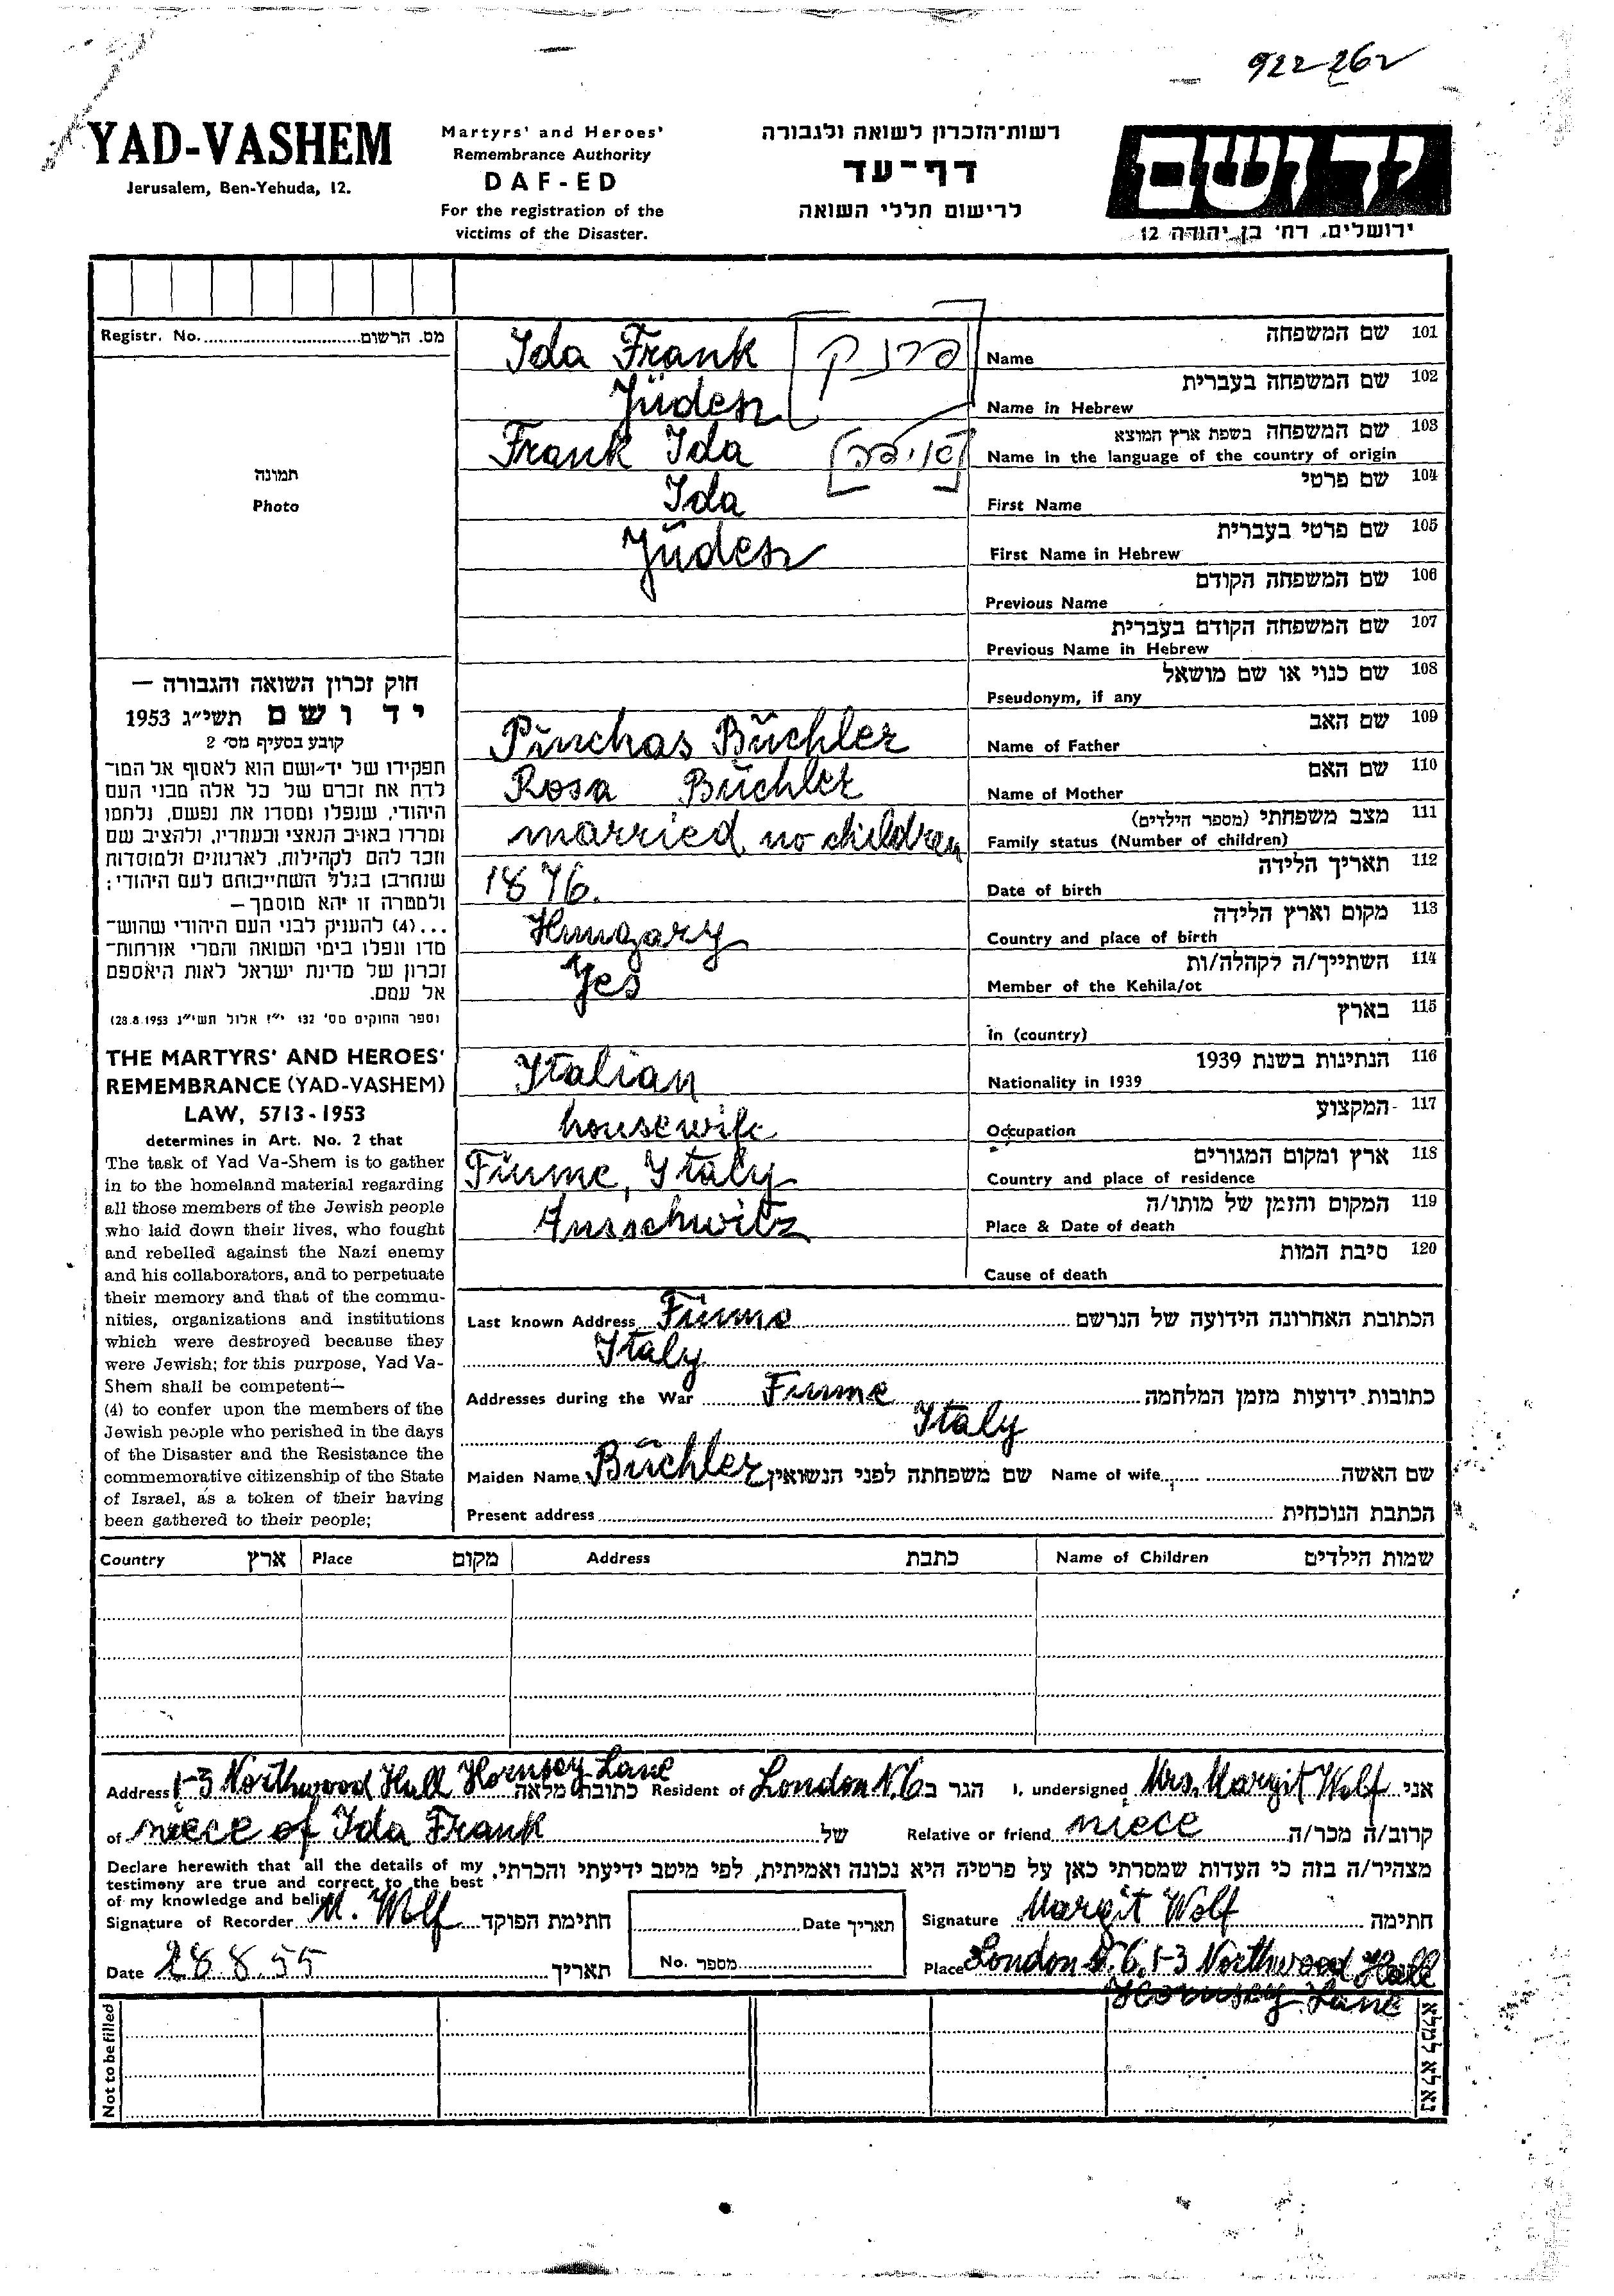 922262
YAD-VASHEM
Jerusalem, Ben-Yehuda, 12.
Martyrs' and Heroes'
Remembrance Authority
DAF-ED
For the registration of the
victims of the Disaster.
רשות־הזכרון לשואה ולגבורה
דף־עד
לרישום חללי השואה
ירושלים, רח׳ בן יהודה 12
Registr. No. מס. הרשום
תמונה
Photo
Ida Frank פרנק Name שם המשפחה 101
Jüden Name in Hebrew שם המשפחה בעברית 102
Frank Ida Name in the language of the country of origin שם המשפחה בשפת ארץ המוצא 103
Ida First Name שם פרטי 104
Jüden First Name in Hebrew שם פרטי בעברית 105
Previous Name שם המשפחה הקודם 106
Previous Name in Hebrew שם המשפחה הקודם בעברית 107
Pseudonym, if any שם כנוי או שם מושאל 108
Pinchas Büchler Name of Father שם האב 109
Rosa Büchler Name of Mother שם האם 110
married no children Family status (Number of children) מצב משפחתי (מספר הילדים) 111
1876. Date of birth תאריך הלידה 112
Hungary Country and place of birth מקום וארץ הלידה 113
Yes Member of the Kehila/ot השתייך/ה לקהלה/ות 114
in (country) בארץ 115
Italian Nationality in 1939 הנתינות בשנת 1939 116
housewife Occupation המקצוע 117
Fiume, Italy Country and place of residence ארץ ומקום המגורים 118
Ausschwitz Place & Date of death המקום והזמן של מותו/ה 119
Cause of death סיבת המות 120
חוק זכרון השואה והגבורה —
יד ושם תשי״ג 1953
קובע בסעיף מס׳ 2
תפקידו של יד־ושם הוא לאסוף אל המו־
לדת את זכרם של כל אלה מבני העם
היהודי, שנפלו ומסרו את נפשם, נלחמו
ומרדו באויב הנאצי ובעוזריו, ולהציב שם
וזכר להם לקהילות, לארגונים ולמוסדות
שנחרבו בגלל השתייכותם לעם היהודי;
ולמטרה זו יהא מוסמך —
...(4) להעניק לבני העם היהודי שהוש־
מדו ונפלו בימי השואה והמרי אזרחות־
זכרון של מדינת ישראל לאות היאספם
אל עמם.
(ספר החוקים מס׳ 132 י״ז אלול תשי״ג 28.8.1953)
THE MARTYRS' AND HEROES'
REMEMBRANCE (YAD-VASHEM)
LAW, 5713-1953
determines in Art. No. 2 that
The task of Yad Va-Shem is to gather
in to the homeland material regarding
all those members of the Jewish people
who laid down their lives, who fought
and rebelled against the Nazi enemy
and his collaborators, and to perpetuate
their memory and that of the commu-
nities, organizations and institutions
which were destroyed because they
were Jewish; for this purpose, Yad Va-
Shem shall be competent—
(4) to confer upon the members of the
Jewish people who perished in the days
of the Disaster and the Resistance the
commemorative citizenship of the State
of Israel, as a token of their having
been gathered to their people;
Last known Address Fiume הכתובת האחרונה הידועה של הנרשם
Italy
Addresses during the War Fiume כתובות ידועות מזמן המלחמה
Italy
Maiden Name Büchler שם משפחתה לפני הנשואין Name of wife שם האשה
Present address הכתבת הנוכחית
Country ארץ Place מקום Address כתבת Name of Children שמות הילדים
Address 1-3 Northwood Hall Hornsey Lane כתובת מלאה Resident of London N.6 הגר ב I, undersigned Mrs. Margit Wolf אני
of niece of Ida Frank של Relative or friend niece קרוב/ה מכר/ה
Declare herewith that all the details of my
testimony are true and correct to the best
of my knowledge and belief
מצהיר/ה בזה כי העדות שמסרתי כאן על פרטיה היא נכונה ואמיתית, לפי מיטב ידיעתי והכרתי.
Signature of Recorder M. Wolf חתימת הפוקד Date תאריך Signature Margit Wolf חתימה
Date 28.8.55 תאריך No. מספר Place London N.6, 1-3 Northwood Hall
Hornsey Lane
Not to be filled נא לא למלא